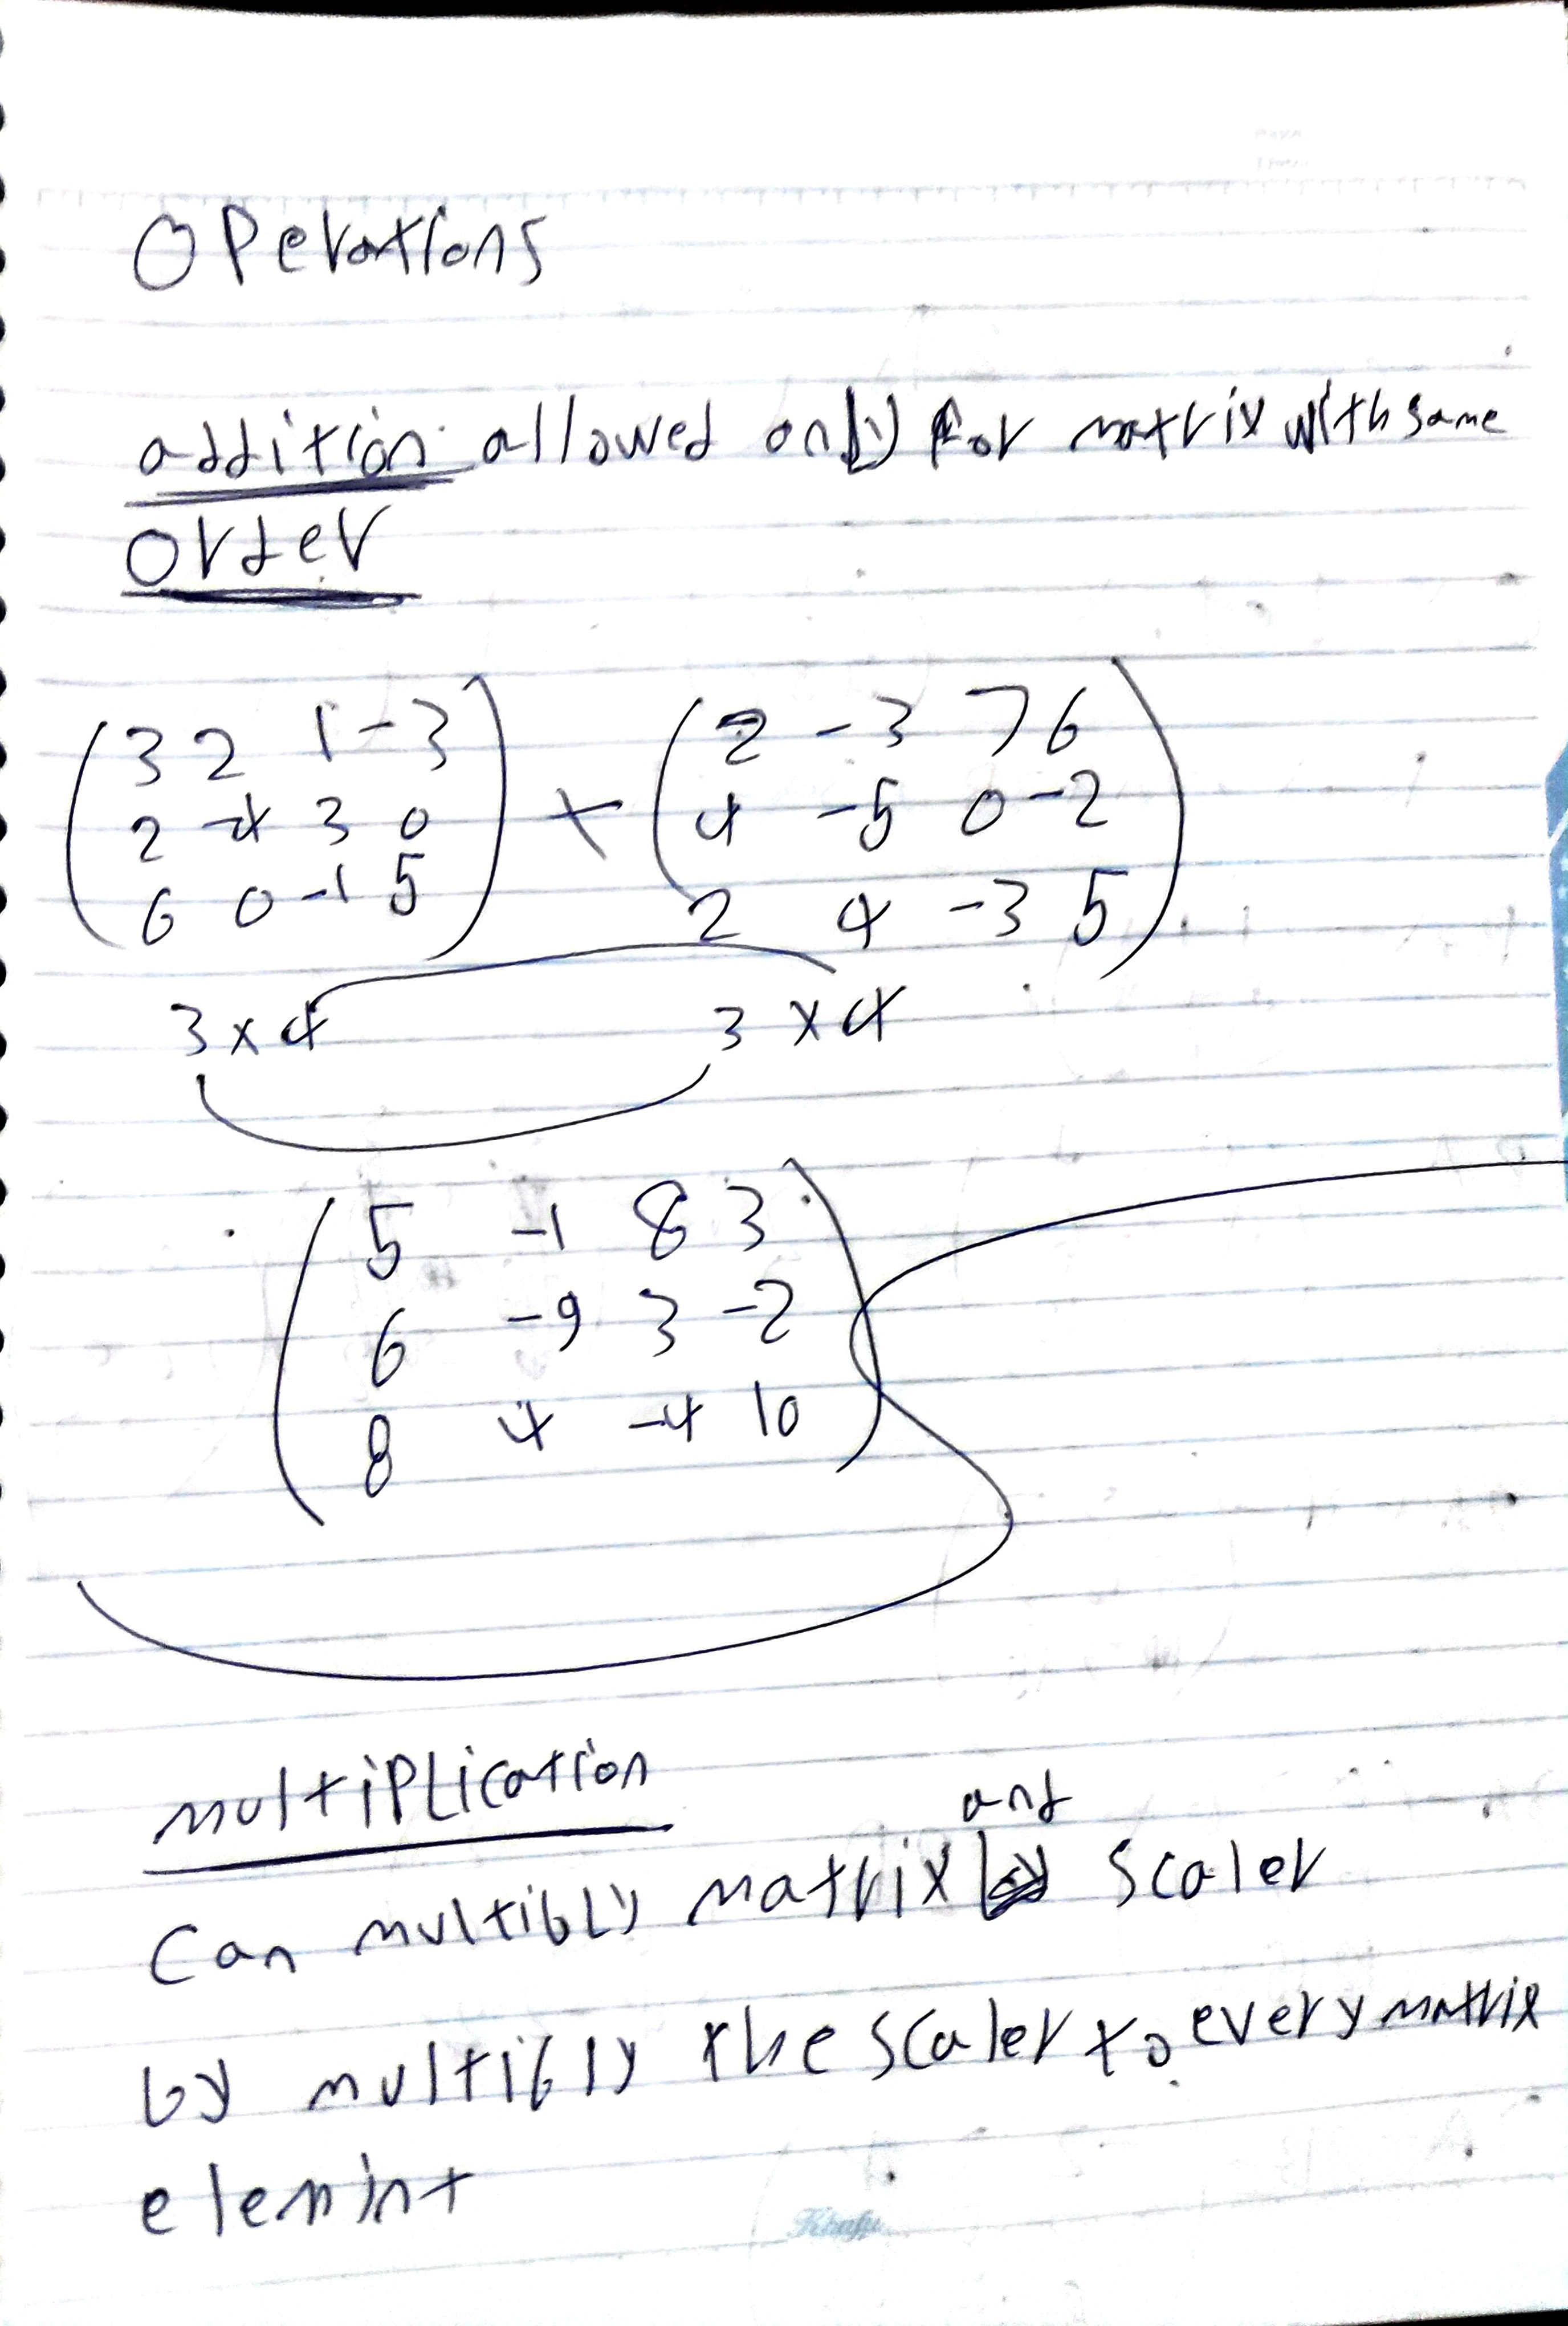 Operations
addition allowed only for matrix with same
order
3 2 1 -3
2 -4 3 0
6 0 -1 5
+
2 -3 7 6
4 -5 0 -2
2 4 -3 5
3 x 4 3 x 4
5 -1 8 3
6 -9 3 -2
8 4 -4 10
multiplication
and
Can multibly matrix scaler
by multibly the scaler to every matrix
elemint